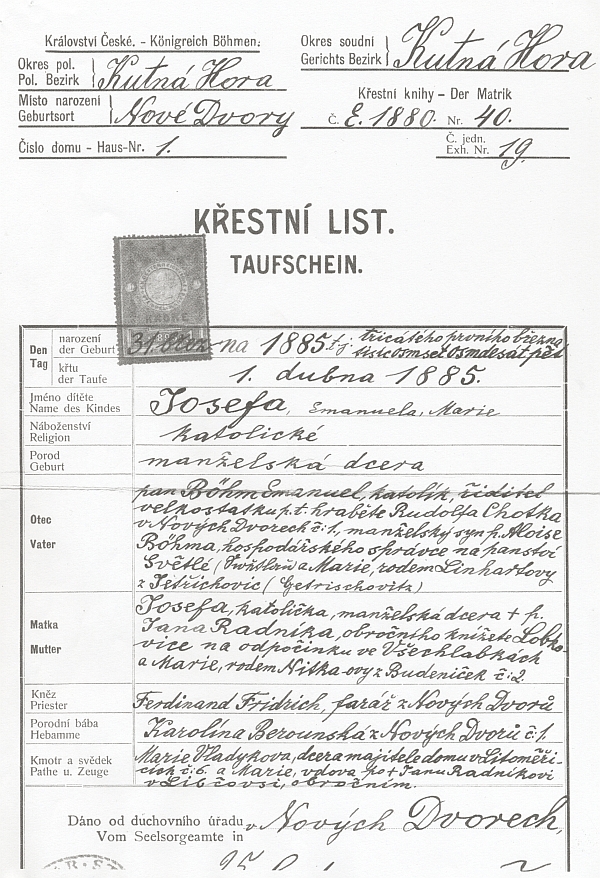 Království České. - Königreich Böhmen.
Okres pol.
Pol. Bezirk
Kutná Hora
Místo narození
Geburtsort
Nové Dvory
Číslo domu - Haus-Nr. 1.
Okres soudní
Gerichts Bezirk
Kutná Hora
Křestní knihy - Der Matrik
Č. E. 1880. Nr. 40.
Č. jedn.
Exh. Nr. 19.
KŘESTNÍ LIST.
TAUFSCHEIN.
KRONE
Den
Tag
narození
der Geburt
31 března 1885. tj. tricátého prvního března
tisíc osmset osmdesát pět
křtu
der Taufe
1. dubna 1885.
Jméno dítěte
Name des Kindes
Josefa, Emanuela, Marie
Náboženství
Religion
katolické
Porod
Geburt
manželská dcera
Otec
Vater
pan Böhm Emanuel, katolík, řiditel
velkostatku p.t. hraběte Rudolfa Chotka
v Nových Dvorech č: 1, manželský syn p. Aloise
Böhma, hospodářského správce na panství
Světlé a Marie, rodem Linhartovy
z Jetřichovic (Getrischovitz)
Matka
Mutter
Josefa, katolička, manželská dcera + p.
Jana Radníka, obročního knížete Lobko
vice na odpočinku ve Všechlabkách
a Marie, rodem z Budeniček č: 2.
Kněz
Priester
Ferdinand Fridrich, farář z Nových Dvorů
Porodní bába
Hebamme
Karolína Berounská z Nových Dvorů č: 1.
Kmotr a svědek
Pathe u. Zeuge
Marie Vladykova, dcera majitele domu v Litoměři-
cích č: 6. a Marie, vdova po + Janu Radníkovi
v Libčovsi, obročním.
Dáno od duchovního úřadu
Vom Seelsorgeamte in
v Nových Dvorech,